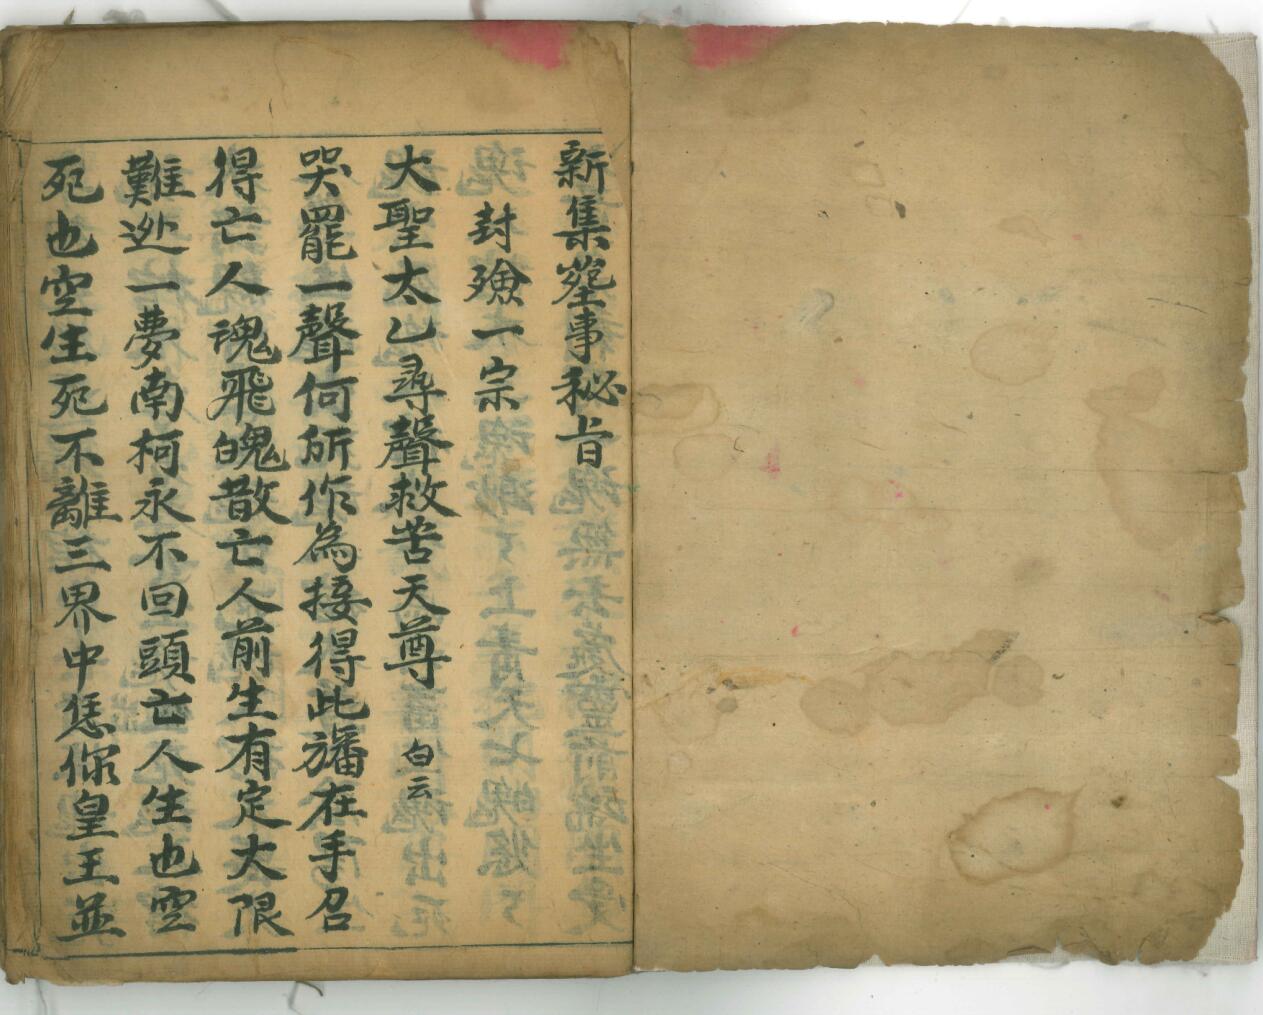 新集塟事秘旨
封殮一宗
大聖太乙尋聲救苦天尊 白云
哭罷一聲何所作為接得此旛在手召
得亡人魂飛魄散亡人前生有定大限
難逊一夢南柯永不回頭亡人生也空
死也空生死不離三界中恁你皇王並